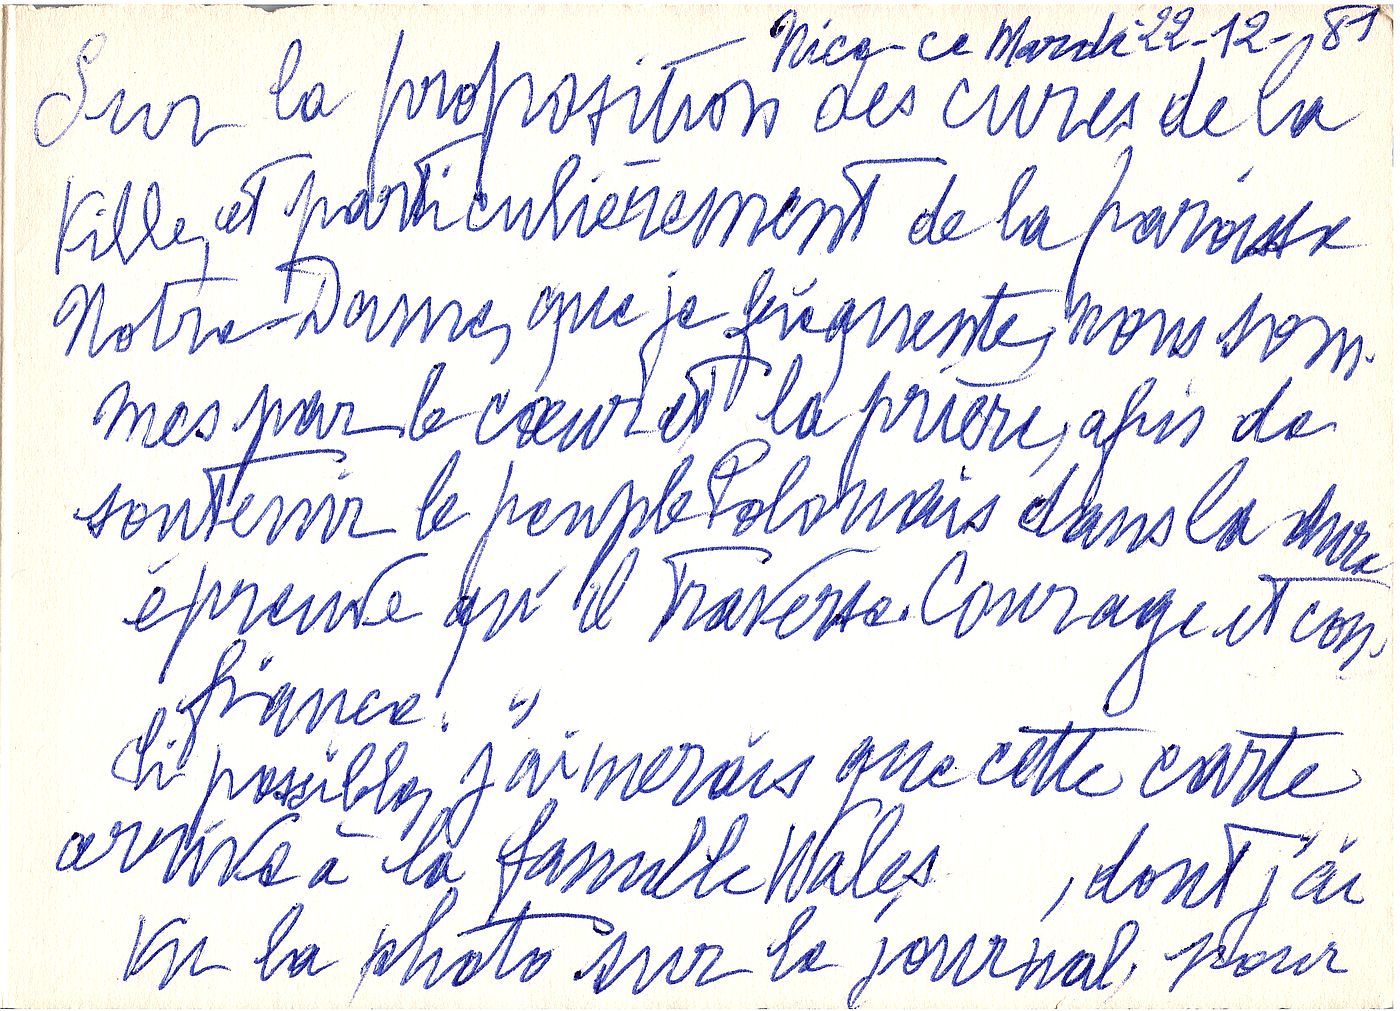 Nice - ce Mardi 22-12-, 81
Sur la proposition des cures de la
Ville, et particulièrement de la paroisse
Notre-Dame, que je fréquente, nous som-
mes par le cœur et la prière, afin de
soutenir le peuple Polonais dans la dure
épreuve qu'il traverse. Courage et con-
fiance. "
Si possible, j'aimerais que cette carte
arrive à la famille Wales , dont j'ai
vu la photo sur le journal, pour